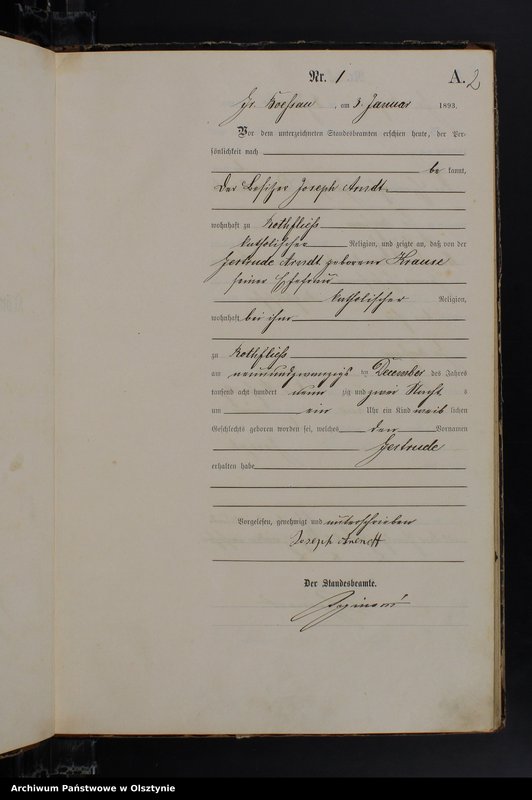 Nr. 1
A. 2
Gr. Koessau, am 3. Januar 1893.
Vor dem unterzeichneten Standesbeamten erschien heute, der Per-
sönlichkeit nach
be kannt,
der Besitzer Joseph Arndt
wohnhaft zu Rothfließ
katholischer Religion, und zeigte an, daß von der
Gertrude Arndt geborene Krause
seiner Ehefrau
katholischer Religion,
wohnhaft bei ihm
zu Rothfließ
am neunundzwanzigs ten December des Jahres
tausend acht hundert neun zig und zwei Nachts
um ein Uhr ein Kind weib lichen
Geschlechts geboren worden sei, welches den Vornamen
Gertrude
erhalten habe
Vorgelesen, genehmigt und unterschrieben
Joseph Arendt
Der Standesbeamte.
Archiwum Państwowe w Olsztynie